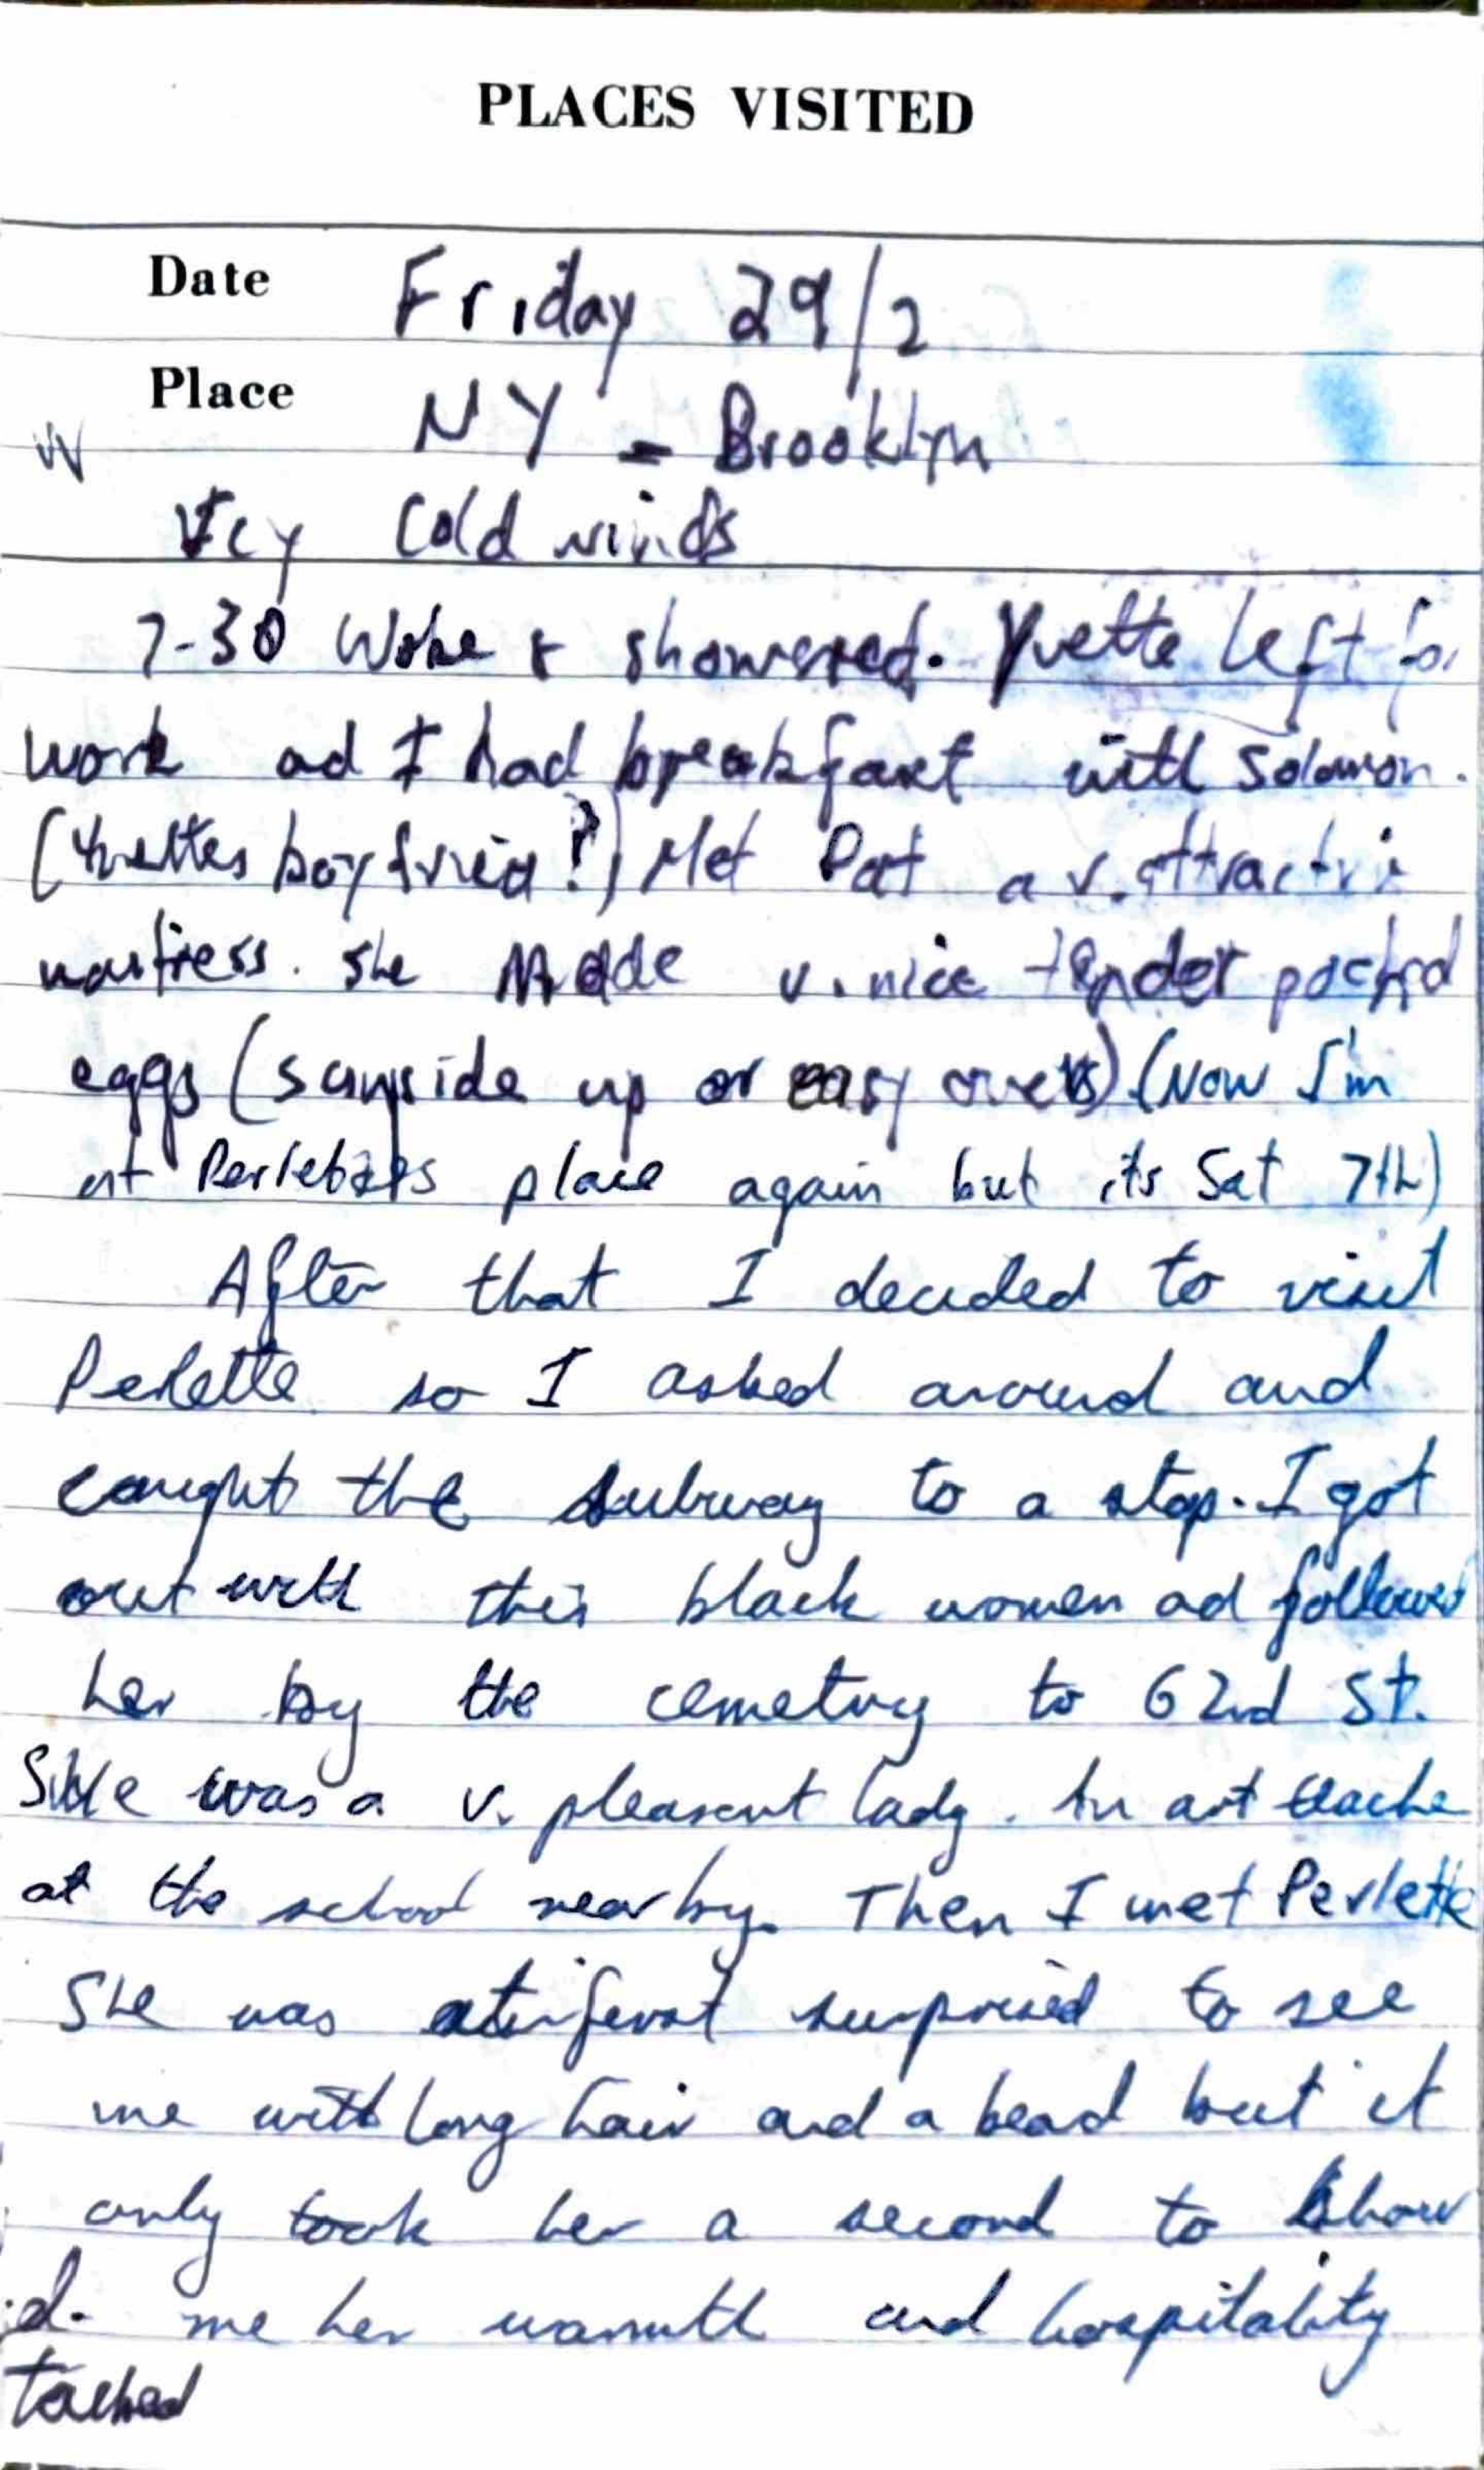 PLACES VISITED
Date Friday 29/2
Place NY - Brooklyn
W
Icy Cold winds
7-30 Woke & showered. Yvette left for
work ad I had breakfast with Solomon.
(Yvettes boyfried?) Met Pat a v. attractive
waitress. She Made v. nice tender poched
eggs (sunyside up or easy overs) (Now I'm
at Perlettes place again but its Sat 7th)
After that I decided to visit
Perlette so I asked around and
caught the subway to a stop. I got
out with this black women ad followed
her by the cemetry to 62nd St.
She was a v. pleasent lady. An art teache
at the school nearby. Then I met Perlette
She was at first surprised to see
me with long hair and a bead but it
only took her a second to show
d. me her warmth and hospitality
talked